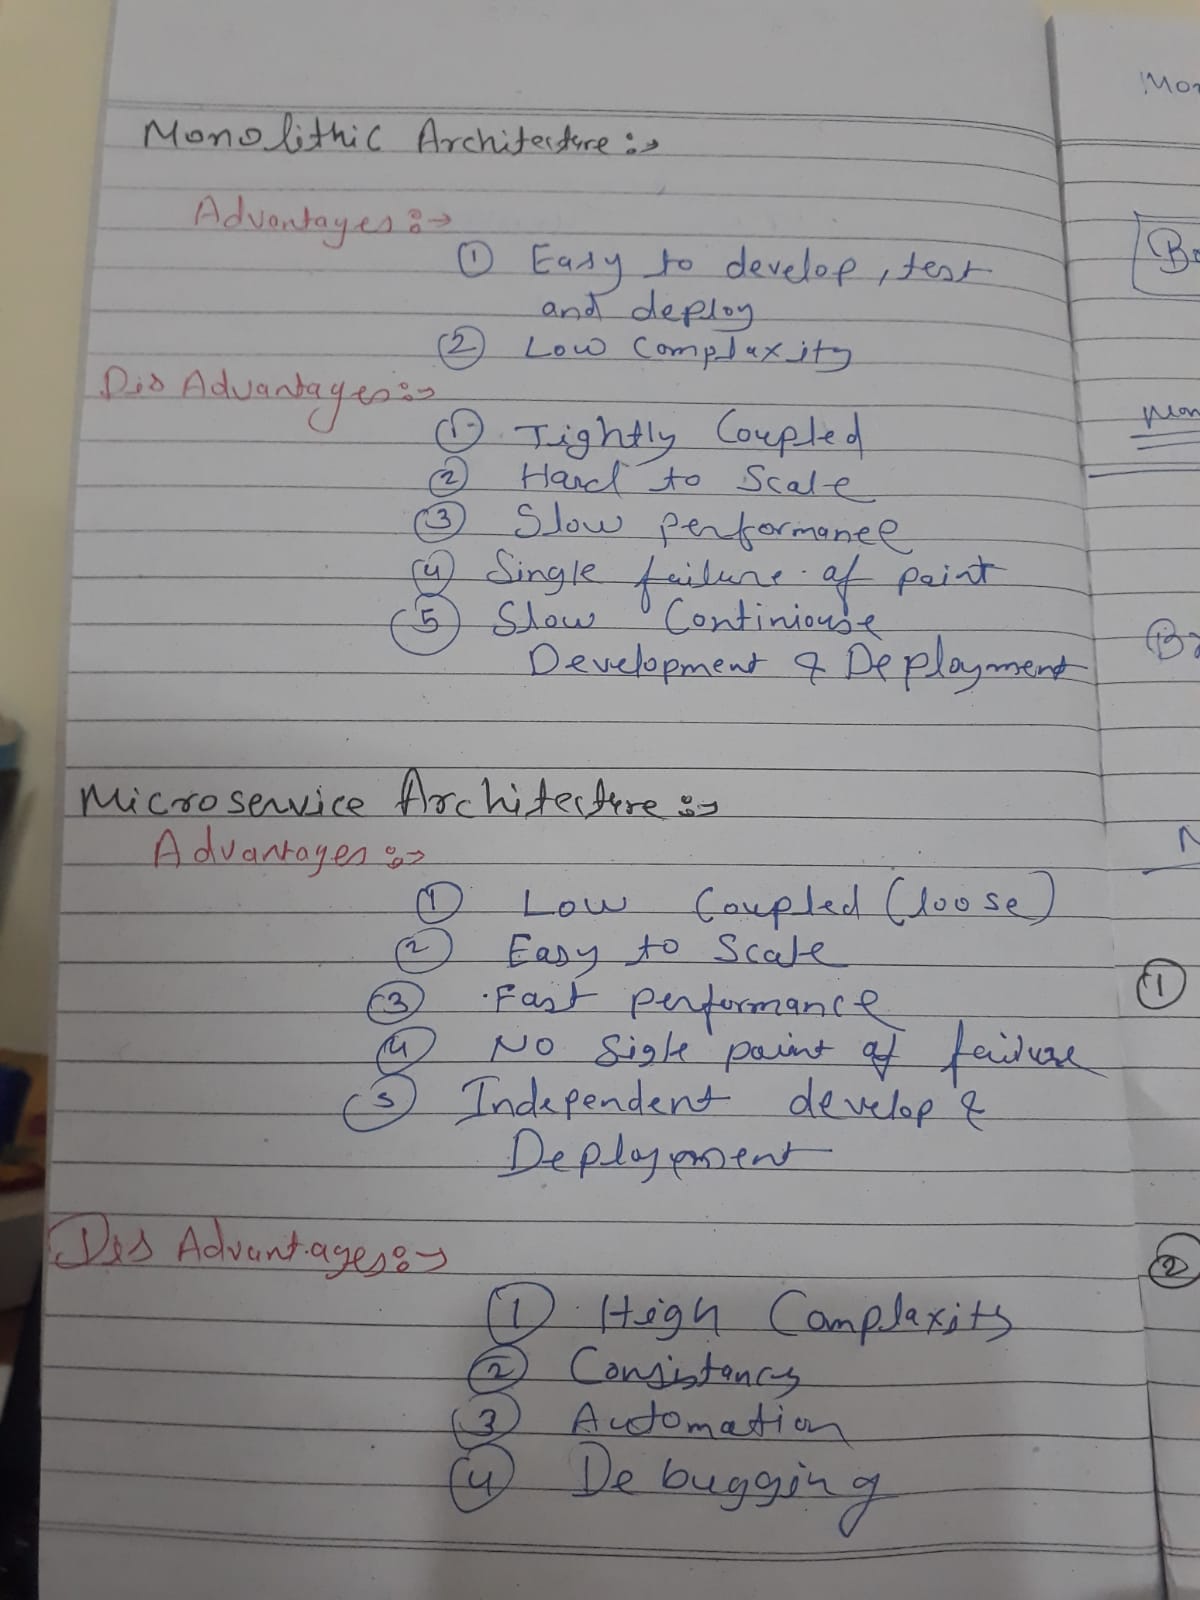 Monolithic Architecture :->
Advantages :->
① Easy to develop, test
and deploy
② Low Complaxity
Dis Advantages :->
① Tightly Coupled
② Hard to Scale
③ Slow performance
④ Single failure of point
⑤ Slow Continiouse
Development & Deployment
Microservice Architecture :->
Advantages :->
① Low Coupled (loose)
② Easy to Scale
③ Fast performance
④ No Sigle point of failure
⑤ Independent develop &
Deployement
Dis Advantages :->
① High Complaxity
② Consistancy
③ Automation
④ Debugging
①
②